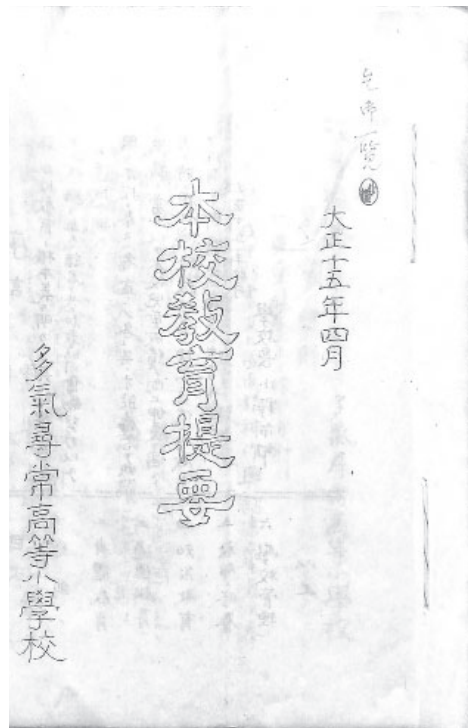 大正十五年四月
本校敎育提要
多氣尋常高等小學校